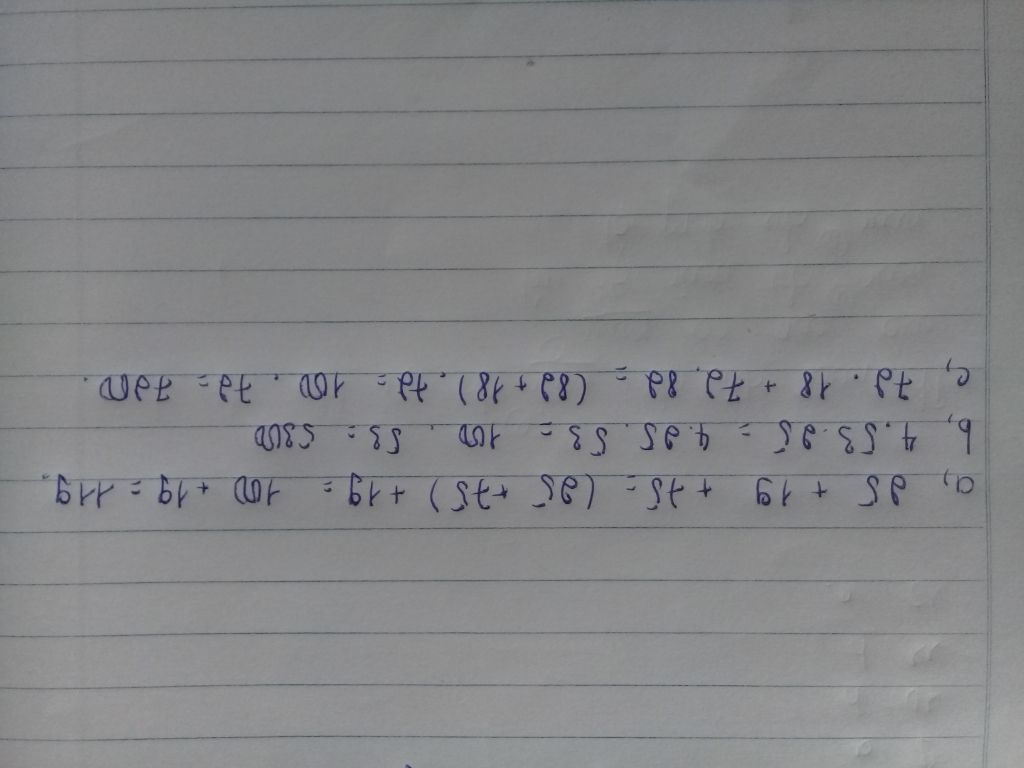 a,) 25 + 19 + 75 = (25 + 75) + 19 = 100 + 19 = 119.
b, 4.53.25 = 4.25.53 = 100 . 53 = 5300
c, 72 . 18 + 72.82 = (82 + 18) . 72 = 100 . 72 = 7200.